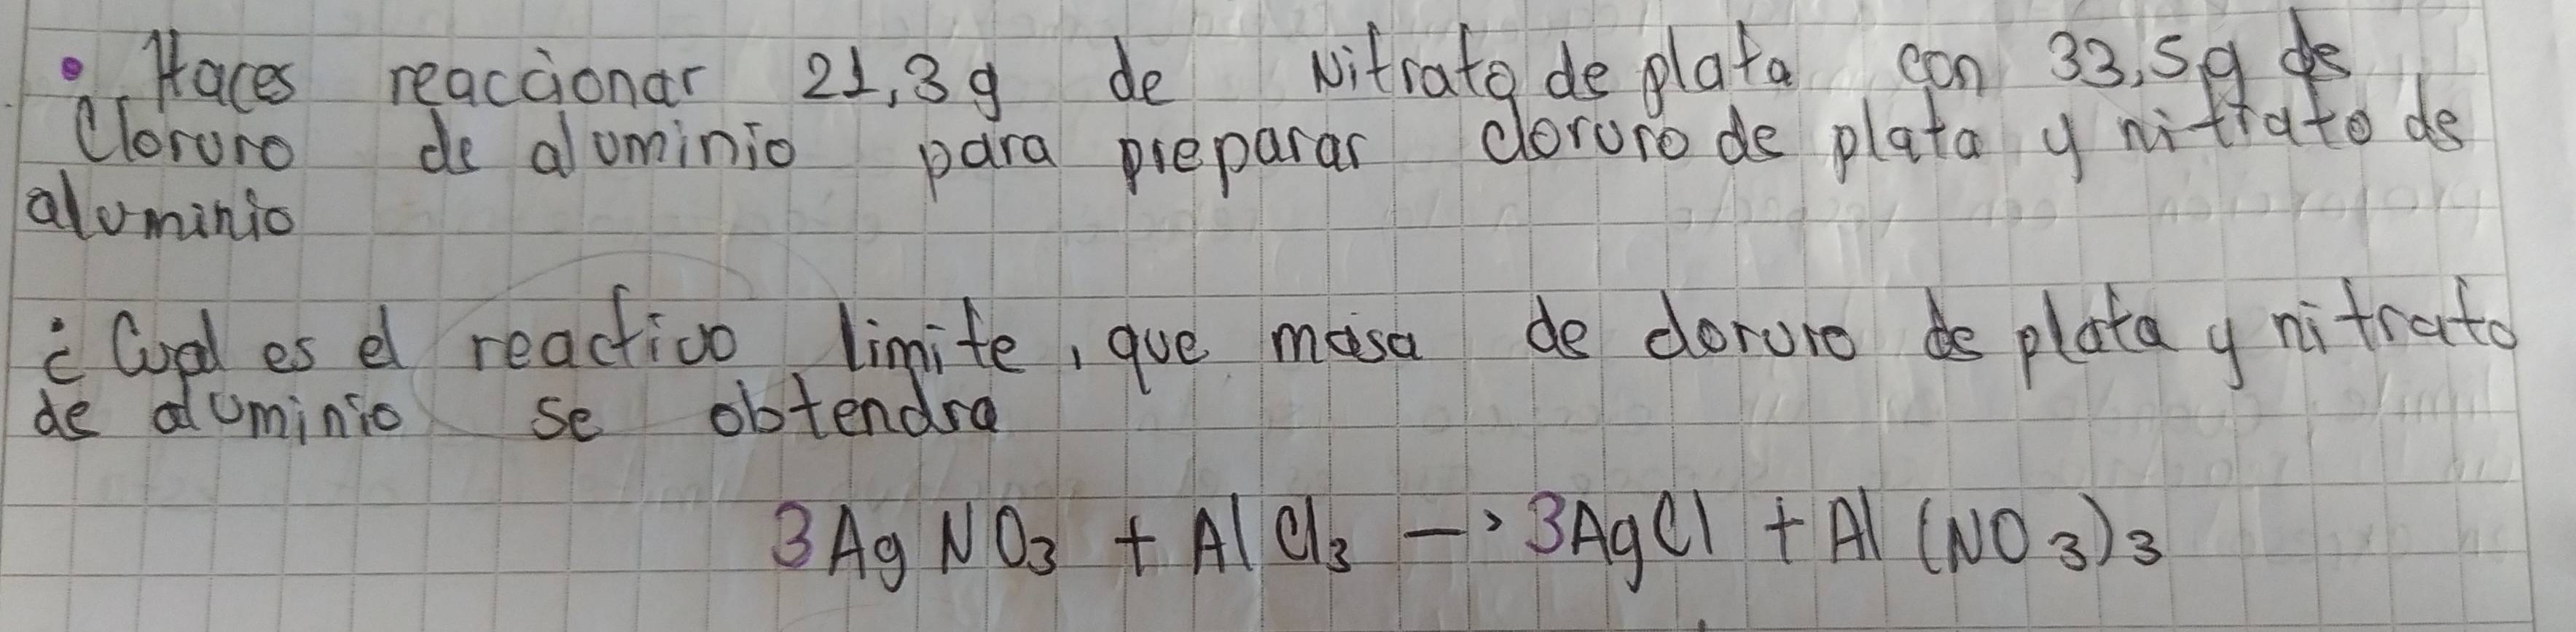 • Haces reaccionar 21,3g de Nitrato de plata con 33,5g de
Cloruro de aluminio para preparar cloruro de plata y nitrato de
aluminio
¿Cual es el reactivo limite, que masa de cloruro de plata y nitrato
de aluminio se obtendra
3AgNO₃ + AlCl₃ → 3AgCl + Al(NO₃)₃